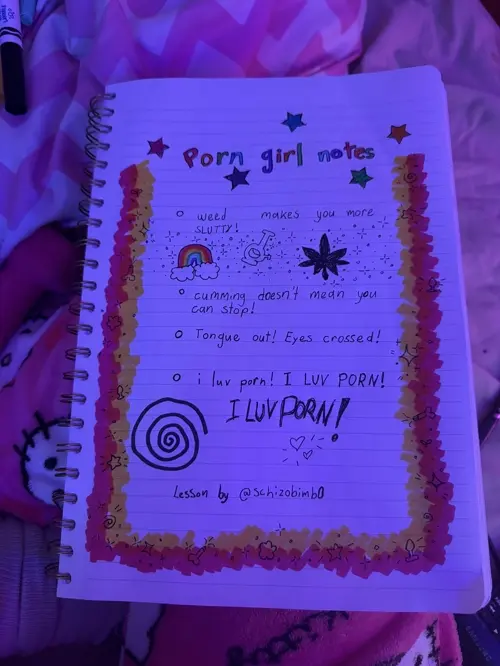 Porn girl notes
weed makes you more
SLUTTY!
cumming doesn't mean you
can stop!
Tongue out! Eyes crossed!
i luv porn! I LUV PORN!
I LUV PORN!
Lesson by @schizobimb0